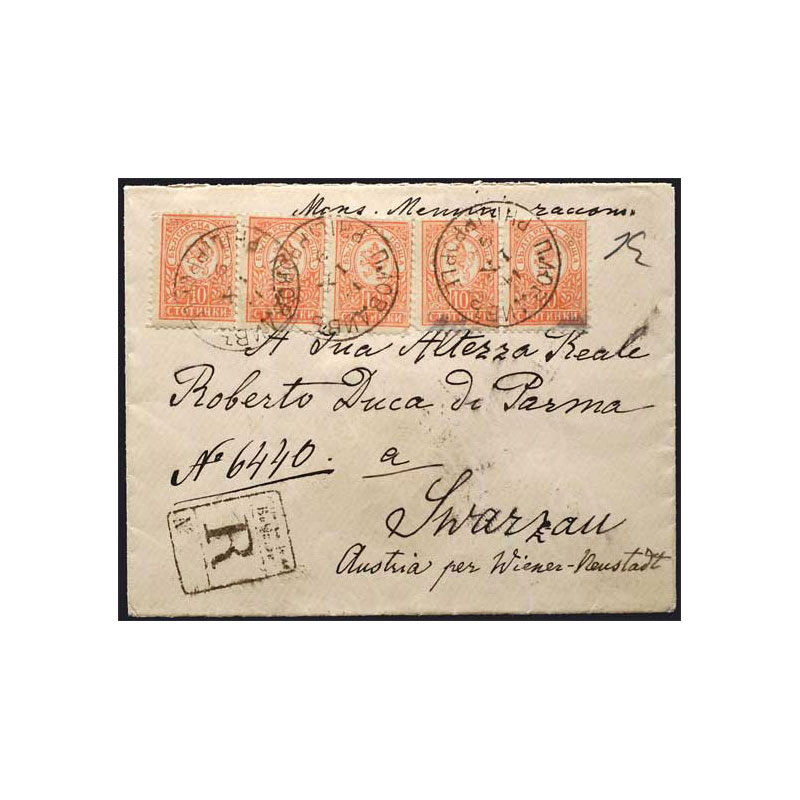 Mons. Menini raccom.
10 СТОТИНКИ
10 СТОТИНКИ
СТОТИНКИ
10 СТОТИНКИ
СТОТИНКИ
PHILIPPOPLI
A Sua Altezza Reale
Roberto Duca di Parma
No 6440. a
Swarzau
Austria per Wiener-Neustadt
R
N